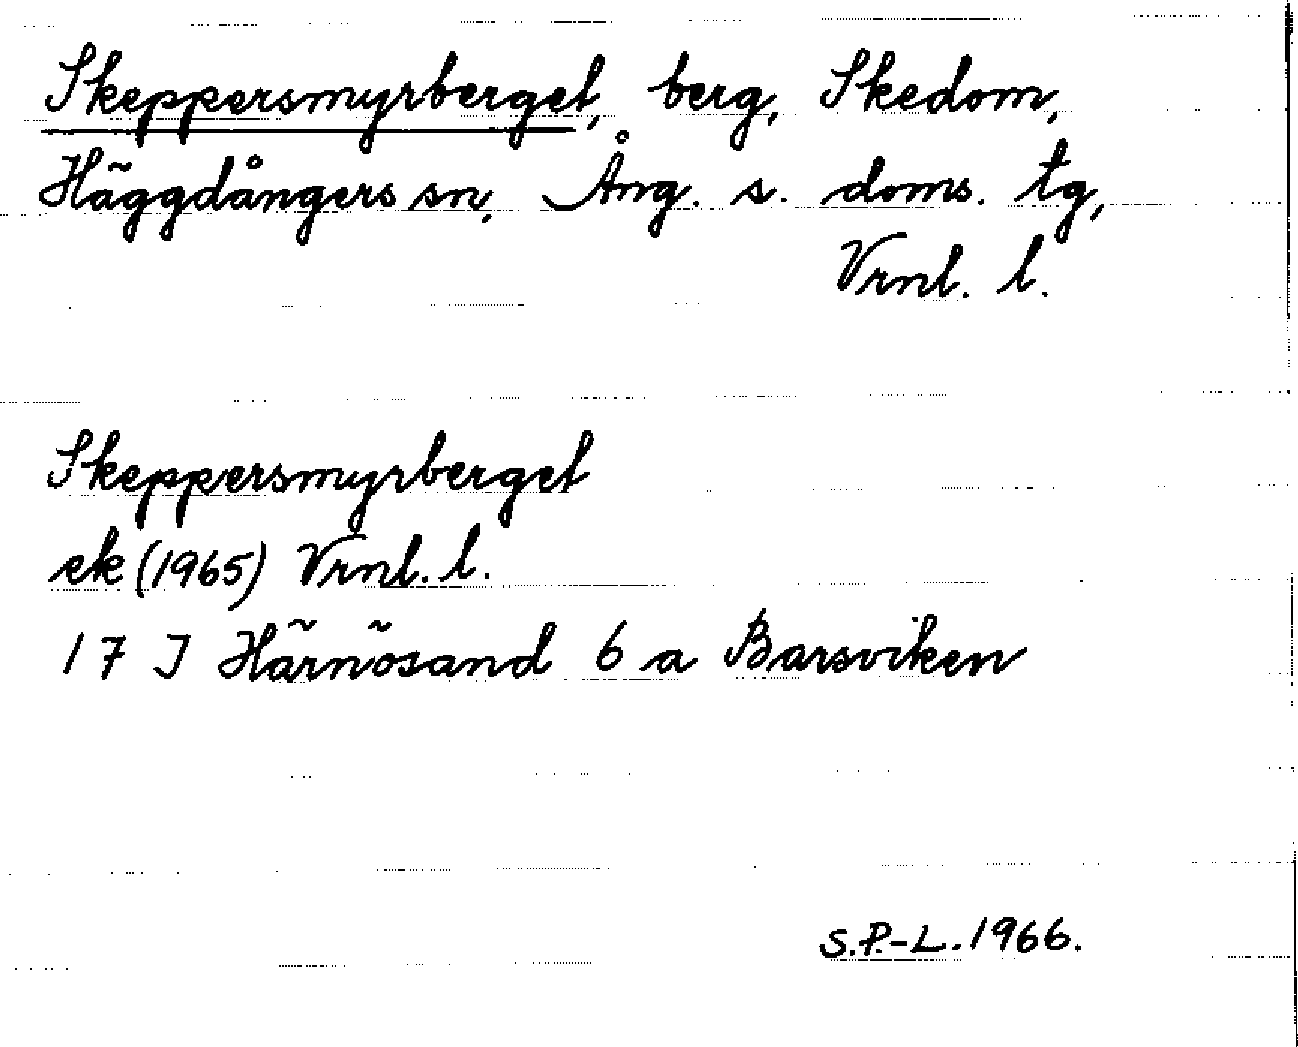 Skeppersmyrberget, berg, Skedom,
Häggdångers sn, Ång. s. doms. tg,
Vrnl. l.
Skeppersmyrberget
ek (1965) Vrnl. l.
17 J Härnösand 6 a Barsviken
S.P.-L. 1966.